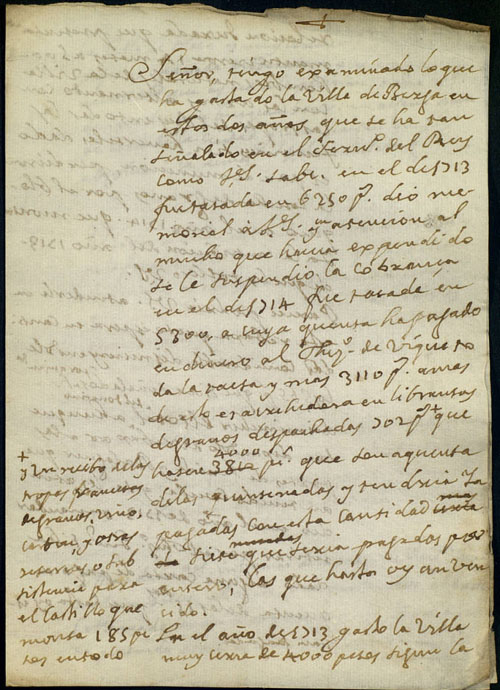 Señor, tengo examinado lo que
ha gastado la Villa de Berga en
estos dos años, que se ha tan
señalado en el Serv.º del Rey
como V.S. sabe. en el de 1713
fue tasada en 6250 p.s dio me
morial à V.S. y en atencion al
mucho que havia expendido
se le suspendio la cobranza
en el de 1714 fue tasada en
5300, a cuya quenta ha pagado
en dinero al de Vique to
da la y mas 3110 p.s amas
de esto es en libranzas
de granos despachadas 702 p.s + que
hacen 4000 p.s que son a quenta
de las quinsenadas y tendria
pagadas con esta cantidad
siete que seria pagadas por
entero, las que hasta oy an ven
cido.
En el año de 1713 gastò la Villa
muy cerca de 4000 pesos segun la
+
y Un recibo de las
tropas
de granos, vino,
carbon, y otras
sub
sistencia para
el Castillo que
monta 185 pe
sos en todo